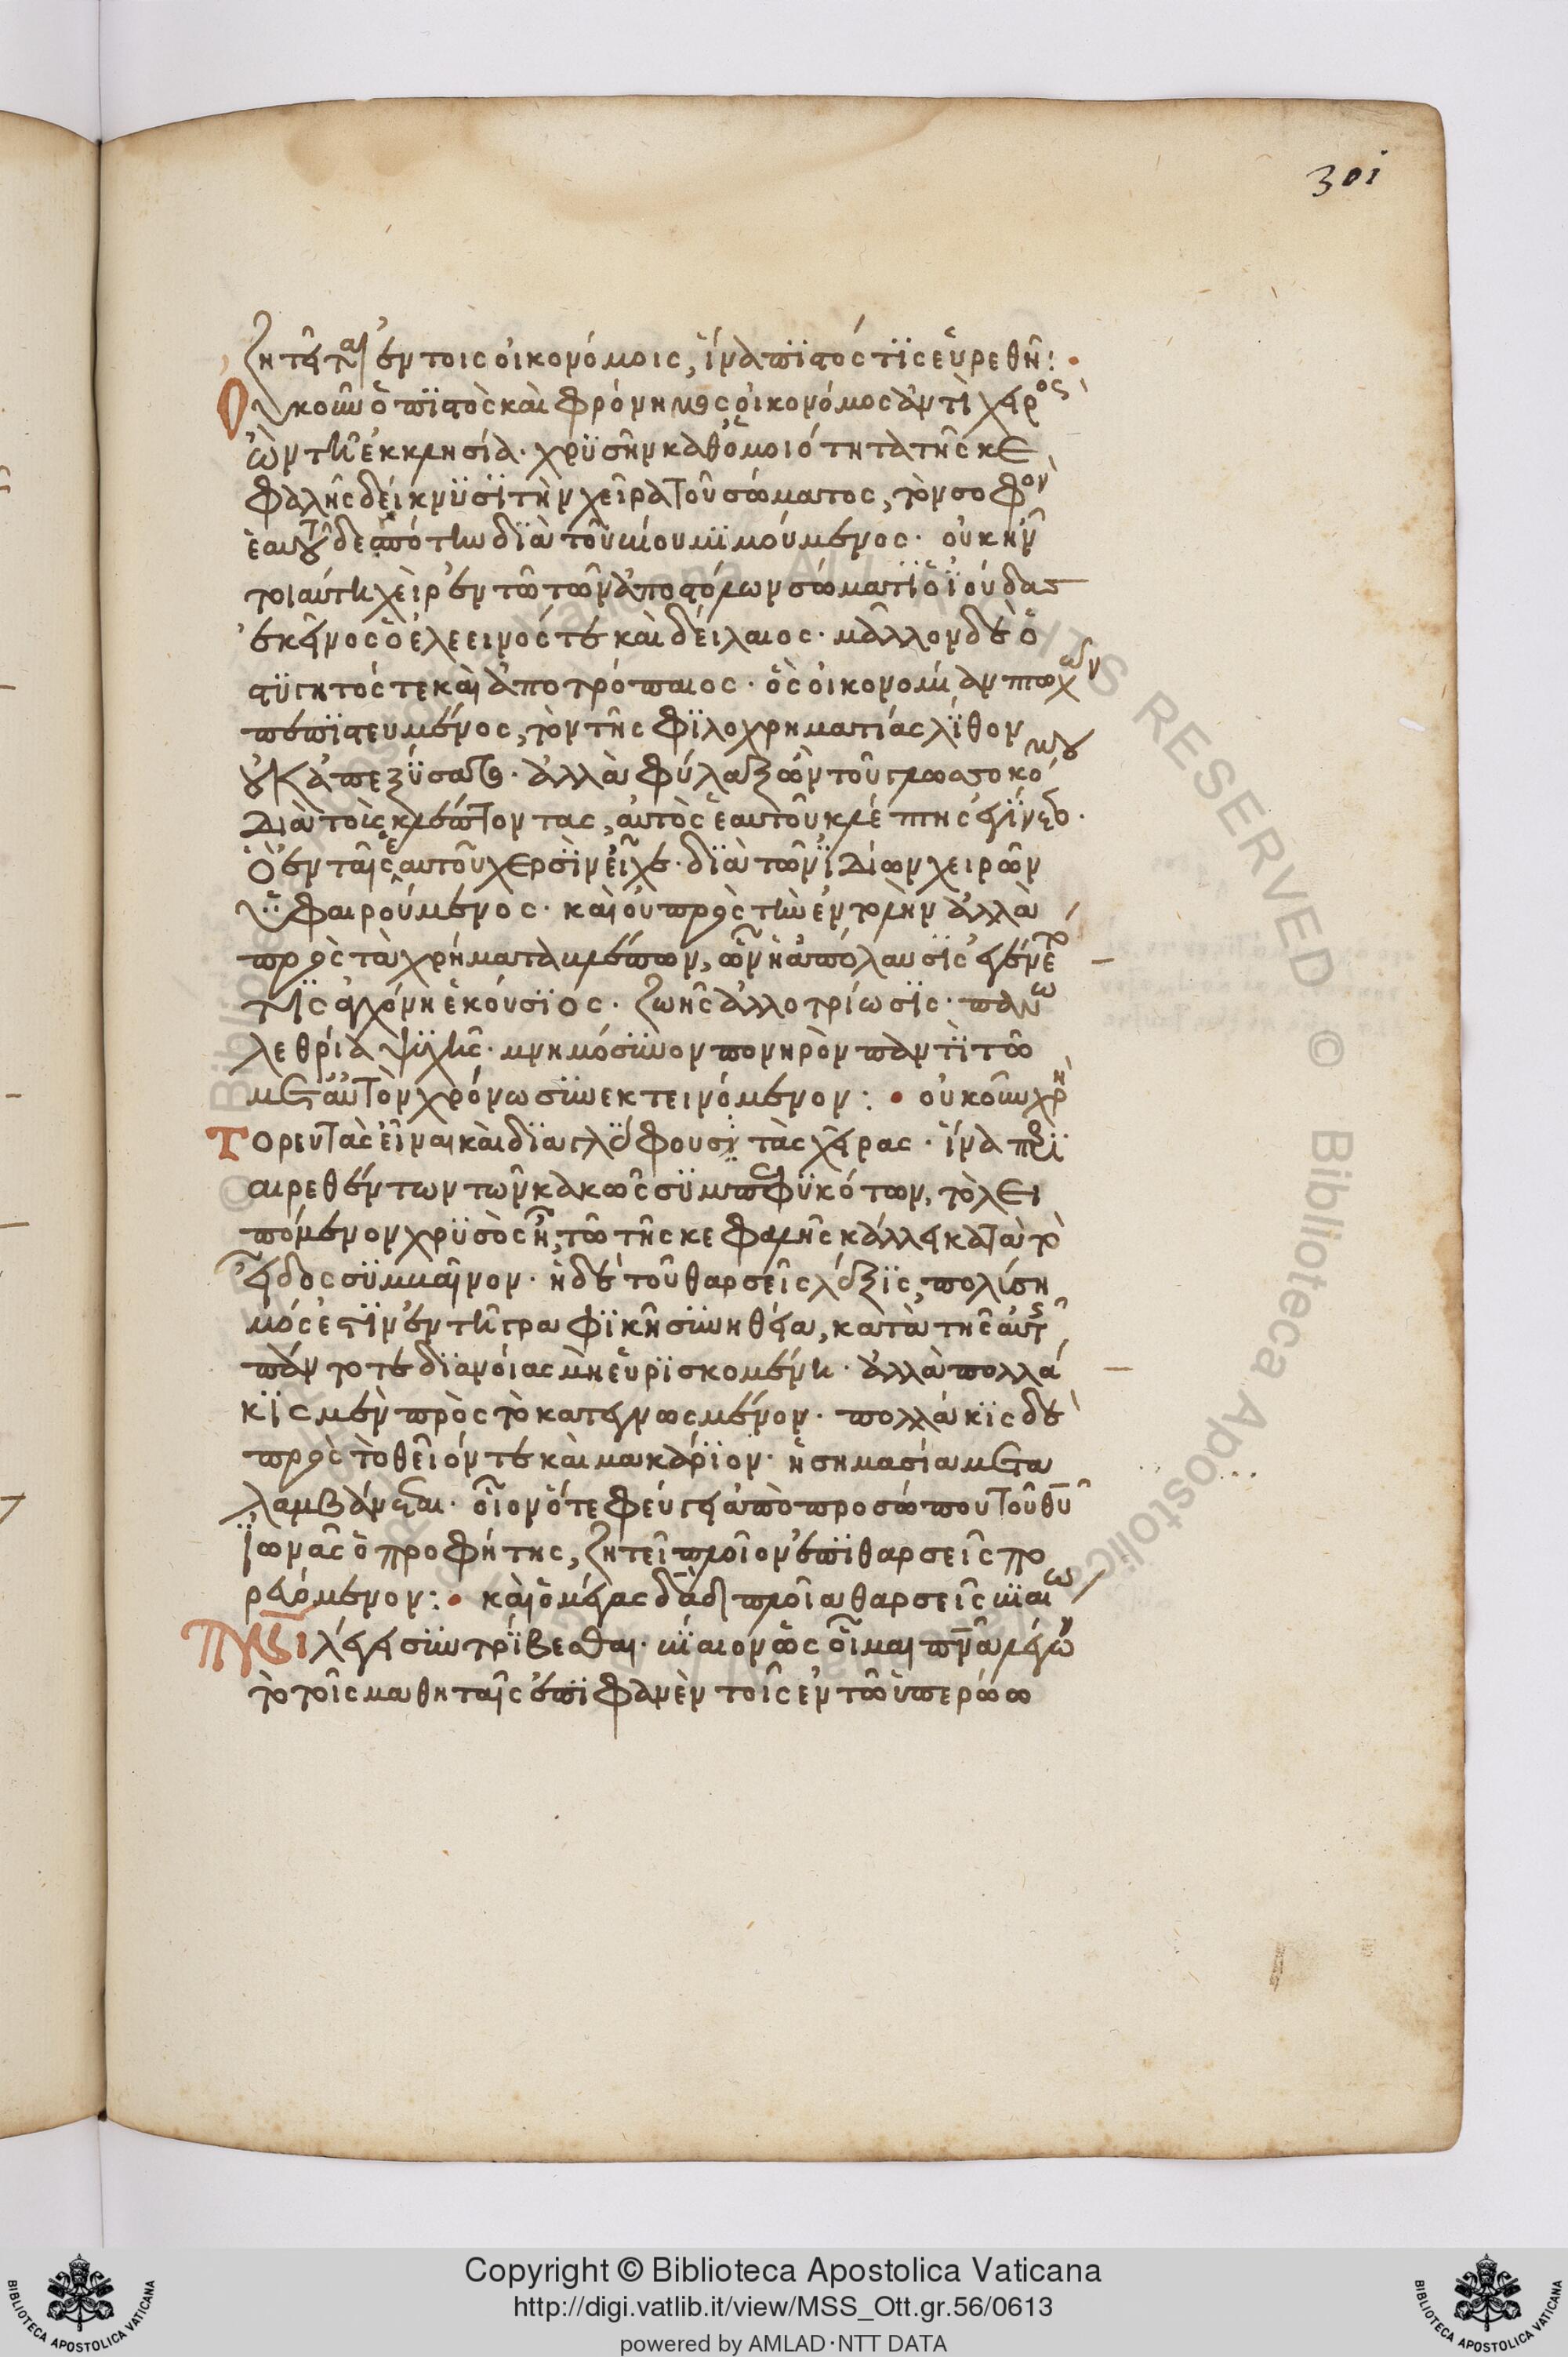 301
ζητεῖται ἐν τοις οἰκονόμοις, ἵνα πϊστός τϊς εὑρεθῆ:
Οὐκοῦν ὁ πϊστὸς καὶ φρόνημος οἰκονόμος ἀντὶ χειρὸς
ὢν τῆ ἐκκλησία. χρϋσῆν καθ ὁμοιότητα τῆς κε
φαλῆς δείκνϋσϊ τὴν χεῖρα τοῦ σώματος, τὸν σοφὸν
ἑαυτοῦ δεσπότην διὰ τοῦ βίου μϊμούμενος. οὐκ ἦν
τοιαύτη χεὶρ ἐν τῶ τῶν ἀποστόλων σώματϊ ὁ ϊούδας
ἐκεῖνος ὁ ἐλεεινός τε καὶ δείλαιος. μᾶλλον δὲ ὁ
στϋγητός τε καὶ ἀποτρόπαιος. ὃς οἰκονομίαν πτωχῶν
πεπϊστευμένος, τὸν τῆς φϊλοχρηματίας λϊθον
οὐκ ἀπεξϋσατο. ἀλλὰ φύλαξ ὢν τοῦ γλωσσοκόμου
διὰ τοὺς κλέπτοντας, αὐτὸς ἑαυτοῦ κλέπτης ἐγϊνετο.
Ὃ ἐν ταῖς ἑαυτοῦ χερσὶν εἶχε. διὰ τῶν ϊδίων χειρῶν
ὑφαιρούμενος. καὶ οὐ πρὸς τὴν ἐντολὴν ἀλλὰ
πρὸς τὰ χρήματα βλέπων, ὧν ἡ ἀπόλαυσϊς ἐγένετο
τϊς ἀγχόνη ἑκούσϊος. ζωῆς ἀλλοτρίωσϊς. πανω
λεθρία ψϋχῆς. μνημόσϋνον πονηρὸν παντὶ τῶ
μετ αὐτὸν χρόνω σϋνεκτεινόμενον: οὐκοῦν χρὴ
Τορευτὰς εἶναι καὶ διαγλύφουσϊ τὰς χεῖρας. ἵνα περϊ
αιρεθέντων τῶν κακῶς σϋμπεφϋκότων, τὸ λει
πόμενον χρϋσὸς ῆ, τῶ τῆς κεφαλῆς κάλλει κατὰ τὸ
εἶδος σϋμβαῖνον. ἡ δὲ τοῦ θαρσεὶς λέξϊς, πολύση
μός ἐστϊν ἐν τῆ γραφϊκῆ σϋνηθεία, κατὰ τῆς αὐτῆς
πάντοτε διανοίας μὴ εὑρϊσκομένη. ἀλλὰ πολλά
κϊς μὲν πρὸς τὸ κατεγνωσμένον. πολλάκϊς δὲ
πρὸς τὸ θεῖόν τε καὶ μακάρϊον. ἡ σημασία μετα
λαμβάνεται. οἷον ὅτε φεύγει ἀπὸ προσώπου τοῦ θυ
ϊωνᾶς ὁ προφήτης, ζητεῖ πλοῖον ἐπϊ θαρσεῖς πο
ρευόμενον: καὶ ὁ μέγας δαδ πλοῖα θαρσεῖς βϊαίω
Πνϊ λέγει σϋντρϊβεσθαι. βϊαιον ὡς οἶμαι πνα λέγων
τὸ τοῖς μαθηταῖς ἐπϊφανὲν τοῖς ἐν τῶ ὑπερώω
Copyright © Biblioteca Apostolica Vaticana
http://digi.vatlib.it/view/MSS_Ott.gr.56/0613
powered by AMLAD·NTT DATA
BIBLIOTECA APOSTOLICA VATICANA
BIBLIOTECA APOSTOLICA VATICANA